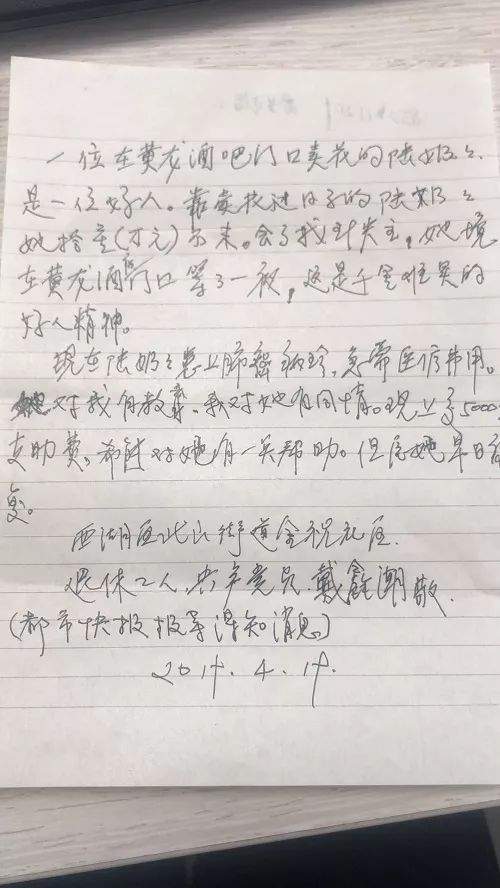 一位在黄龙酒吧门口卖花的陆奶々
是一位好人。靠卖花过日子的陆奶々
她拾金(万元)不未。会了找到失主,她竟
在黄龙酒吧门口等了一夜,这是千金难买的
好人精神。
现在陆奶々患上肺癌,急需医疗费用。
她对我有教育、我对她也有同情。现上了5000
支助费、希能对她有一点帮助。但愿她早日
复。
西湖区北山街道金祝社区
退休工人、共产党员、戴鑫潮敬
(都市快报报导得知消息)
2019.4.19.